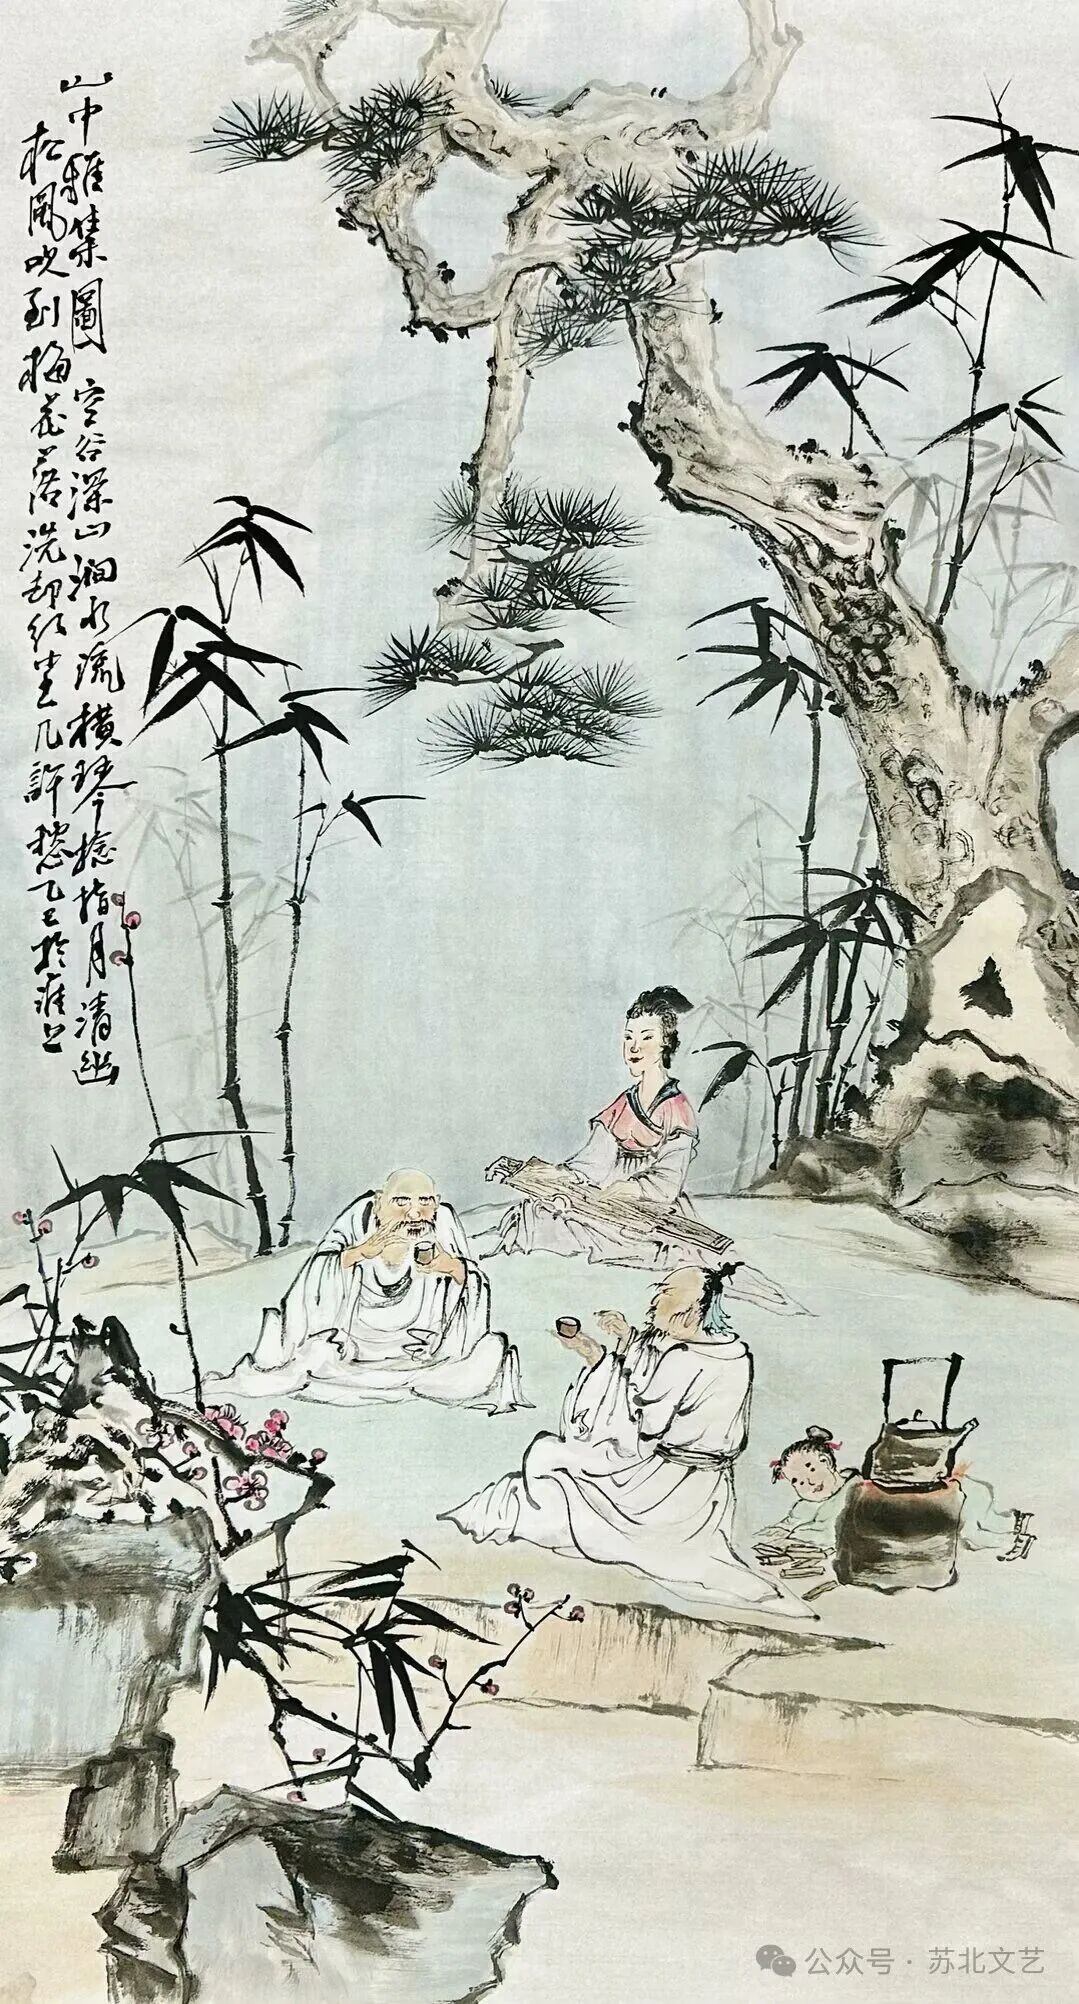 山中雅集圖 空谷深山澗水流横琴捻指月清幽
松風吹到梅花落洗却红尘几許愁乙巳於淮上
公众号 · 苏北文艺